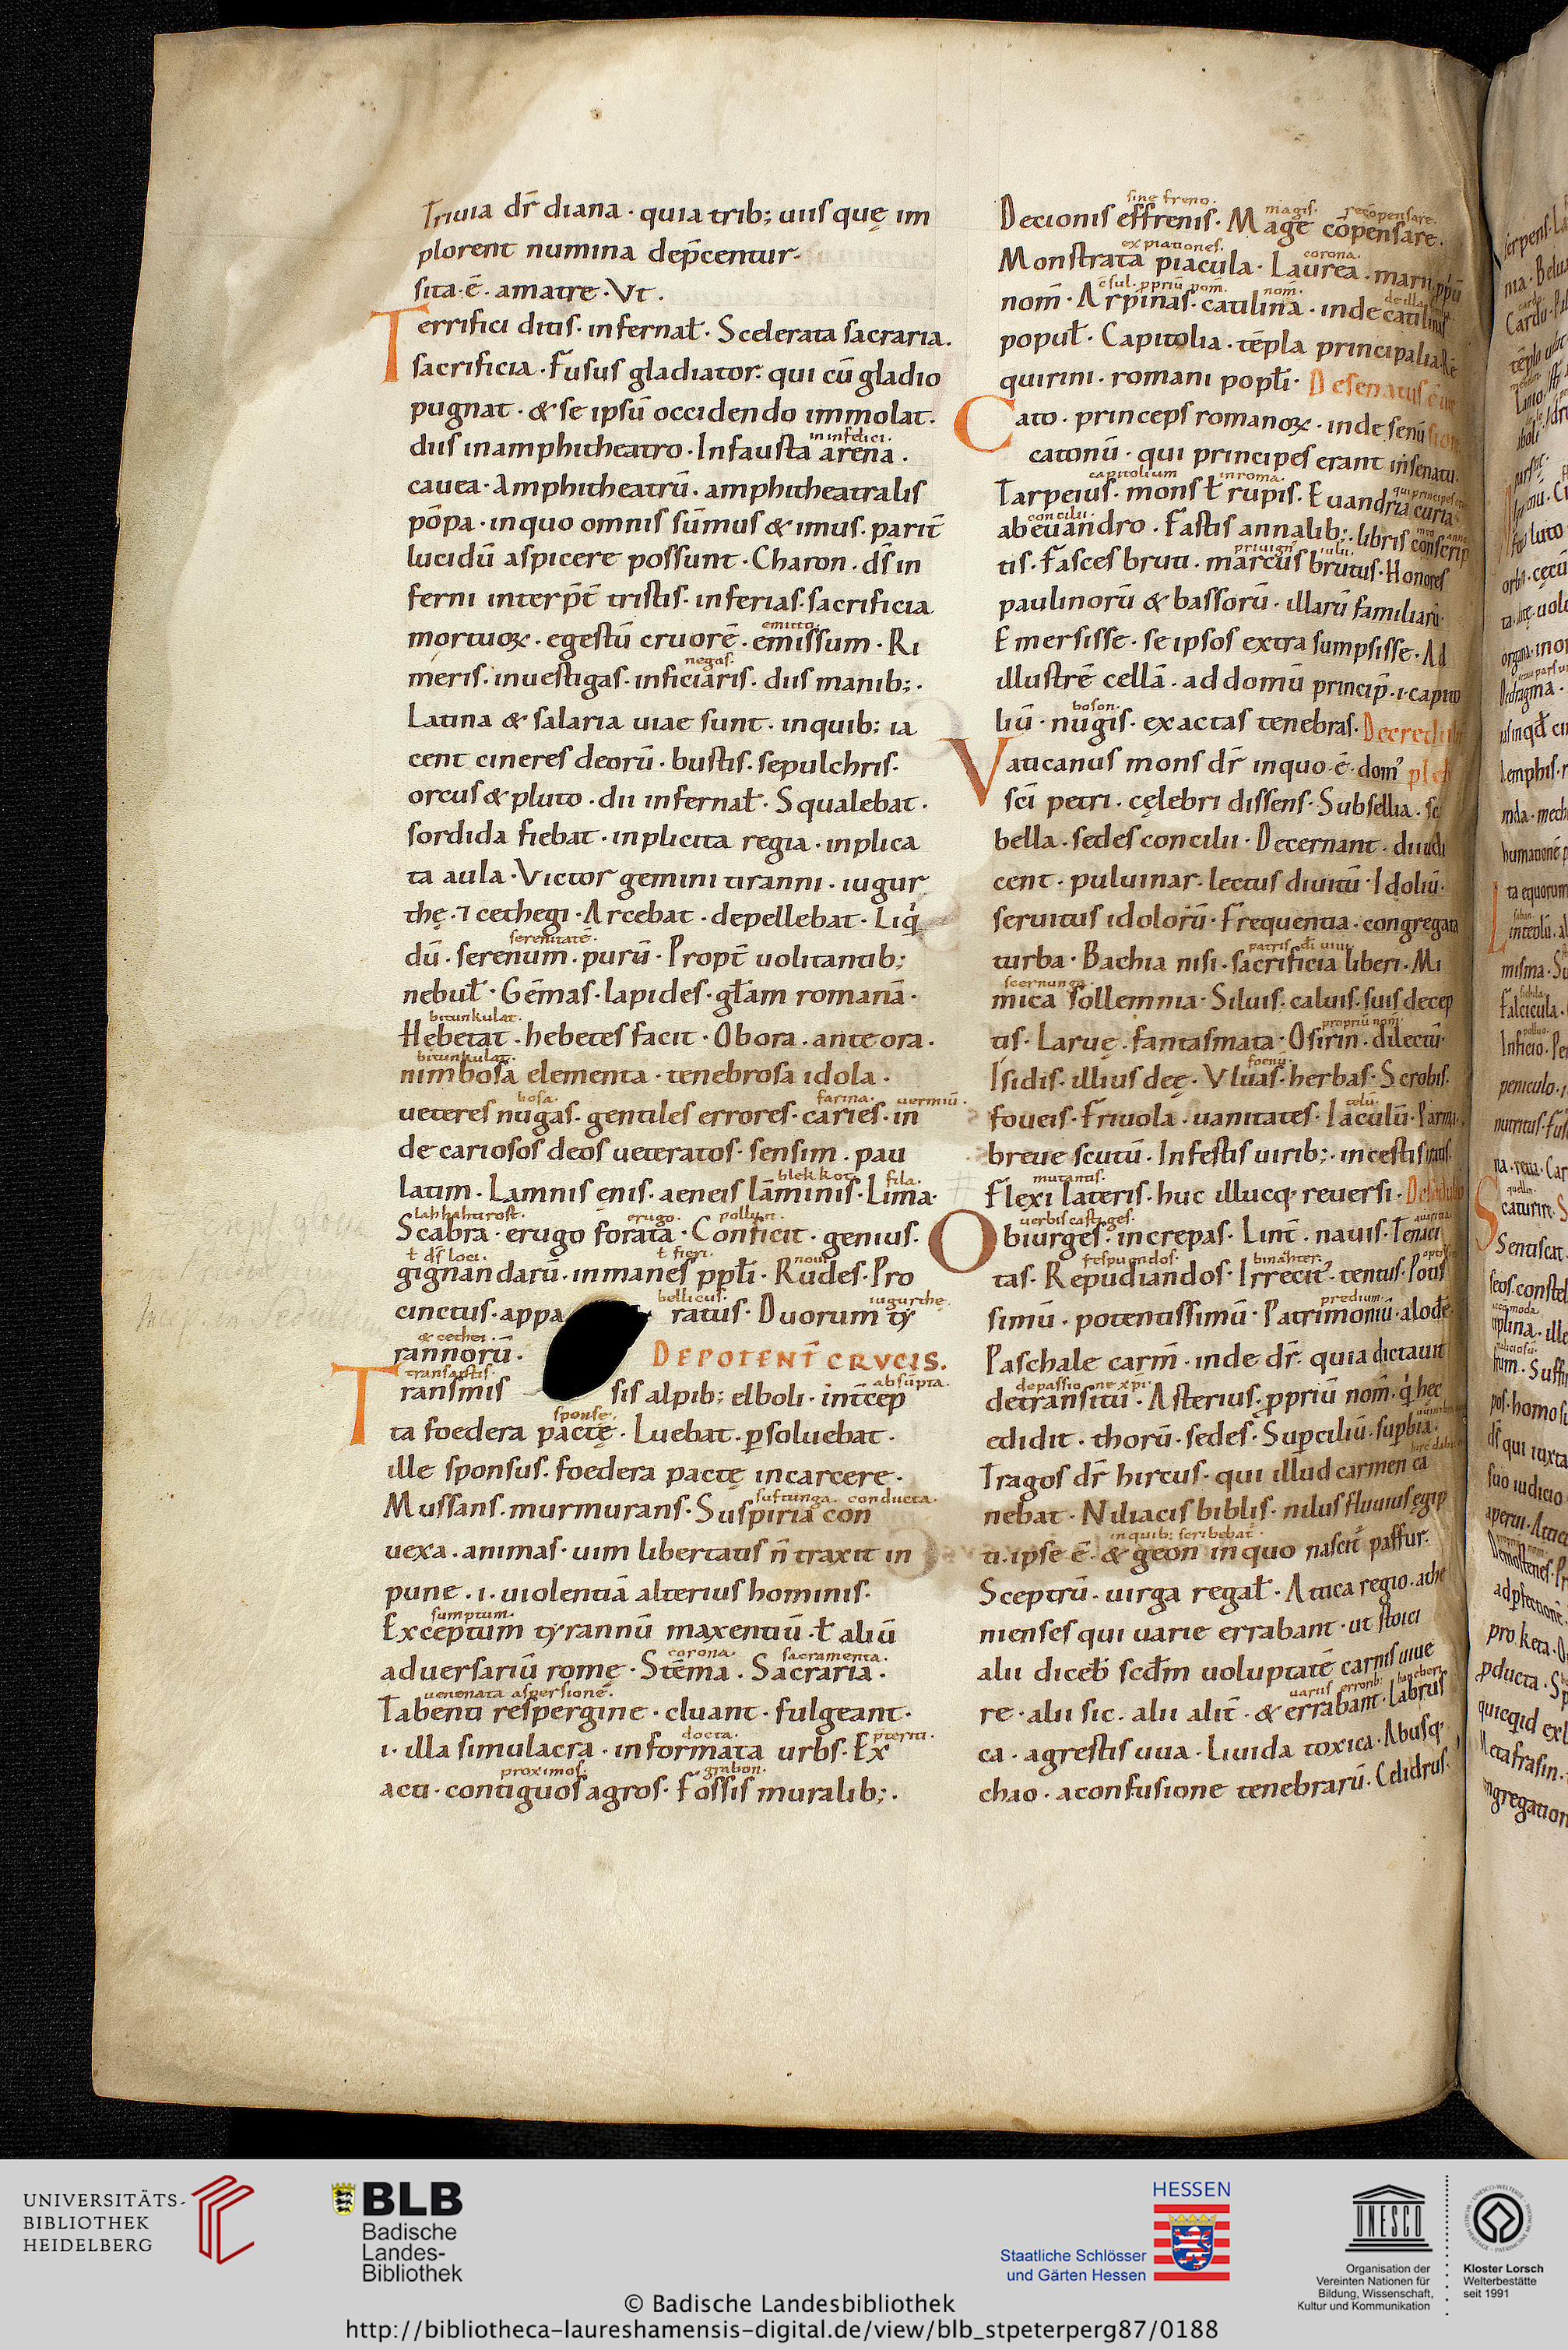 Triuia dr̄ diana · quia trib; uiis quę im
plorent numina dep̄centur·
sita·ē· amatre · Vt ·
Terrifici ditis· infernaƚ· Scelerata sacraria.
sacrificia · Fusus gladiator· qui cū gladio
pugnat · & se ipsū occidendo immolat.
in infelici.
diis inamphitheatro· Infausta arena ·
cauea· Amphitheatrū· amphitheatralis
pōpa · inquo omnis sūmus & imus· parit̄
lucidū aspicere possunt · Charon · ds̄ in
ferni interp̄t̄ tristis· inferias· sacrificia
emitto.
mortuoꝝ · egestū cruorē · emissum · Ri
negas.
meris· inuestigas· inficiaris· diis manib; ·
Latina & salaria uiae sunt· inquib; ia
cent cineres deorū · bustis· sepulchris·
orcus & pluto · dii infernaƚ· Squalebat ·
sordida fiebat · inplicita regia · inplica
ta aula · Victor gemini tiranni · iugur
thę · ⁊ cethegi · Arcebat · depellebat · Liq̇
serenitatē.
dū · serenum · purū · Propt̄ uolitantib;
nebuƚ · Gēmas· lapides· gƚam romanā·
bitunkulat.
Hebetat · hebetes facit · Obora · ante ora ·
bitunkulat.
nimbosa elementa · tenebrosa idola ·
bosa. farina. uermiū.
ueteres nugas· gentiles errores· caries· in
de cariosos deos ueteratos· sensim · pau
blekkot. fila.
latim · Lamnis enis· aeneis lāminis· Lima·
lahhahtirost. erugo. polluit.
Scabra · erugo forata · Conficit · genius·
ƚ ds̄ loci. ƚ fieri. noui.
gignandarū· inmanes ppƚi · Rudes· Pro
bellicus. iugurthę.
cinctus· appa ratus· Duorum ty
& cethei.
rannorū · DEPOTENT̄ CRVCIS.
transactis. absūpta.
Transmis sis alpib; elboli · int̄cep
sponsę.
ta foedera pactę · Luebat · ꝑsoluebat ·
ille sponsus· foedera pactę incarcere ·
suftunga. conducta.
Mussans· murmurans· Suspiria con
uexa · animas· uim libertatis n̄ traxit in
pune · i · uiolentiā alterius hominis·
sumptum.
Exceptum tyrannū maxentiū · ƚ aliū
corona. sacramenta.
aduersariū romę · Stēma · Sacraria ·
uenenata aspersionē.
Tabenti respergine · cluant · fulgeant·
docta. p̄teriti.
i · illa simulacra · informata urbs· Ex
proximos. grabon.
acti · contiguos agros· Fossis muralib; ·
sine freno. magis. recōpensare.
Decionis effrenis· Mage cōpensare.
expiationes. corona.
Monstrata piacula · Laurea · marii ppū
c̄sul. ppriū nom̄. nom̄.
nom̄ · Arpinas· catilinā · inde catilinas
popuƚ · Capitolia · tēpla principalia · Re
quirini · romani popƚi · Desenatus
Cato · princeps romanoꝝ · inde senū
catonū · qui principes erant insenatu·
capitolium inroma. qui principes
Tarpeius· mons ƚ rupis· Euandria curia·
concilii.
ab euandro · Fastis annalib; · libris conscrip
priuign̄ iulii.
tis· Fasces bruti · marcus brutus· Honores
paulinorū & bassorū · illarū familiarū·
Emersisse · se ipsos extra sumpsisse · Ad
illustrē cellā · ad domū princip̄ · i · capito
boson.
liū · nugis· exactas tenebras·
Vaticanus mons dr̄ inquo · ē · dom᾿
sc̄i petri · cęlebri dissens· Subsellia · sc
bella · sedes concilii · Decernant · diiudi
cent · puluinar· lectus diuitū · Idoliū·
seruitus idolorū · Frequentia · congregata
patris di uini.
turba · Bachia nisi · sacrificia liberi · Mi
scernunga.
mica sollemnia · Siluis· caluis· suis decep
propriū nom̄.
tis· Laruę · fantasmata · Osirin · dilectū·
foenū.
Isidis· illius deę · Vluas· herbas· Scrobis·
telū.
foueis· Friuola · uanitates· Iaculū · Parma·
breue scutū · Infestis uirib; · incestis
mutantis.
Flexi lateris· huc illucq· reuersi ·
uerbis castiges.
Obiurges· increpas· Lint̄ · nauis· Tenaci
respuendos. binahter.
tas· Repudiandos· Irrecit᾿ · tentus· Potis
predium.
simū · potentissimū · Patrimoniū · alode·
Paschale carm̄ · inde dr̄ · quia dictauit
de passione xp̄i.
detransitu · Asterius· ppriū nom̄ · q̇ hęc
edidit · thorū · sedes· Supciliū · supbia ·
Tragos dr̄ hircus· qui illud carmen ca
nebat · Niliacis biblis· nilus fluuius ęgip
inquib; scribebat.
ti · ipse ē · & geon inquo nascit᾿ paffur·
Sceptrū · uirga regaƚ · Attica regio · athe
nienses qui uarie errabant · ut stoici
alii diceb̄ scd̄m uoluptatē carnis uiue
uariis errorib;
re · alii sic · alii alit̄ · & errabant · Labrus
ca · agrestis uua · Liuida toxica · Abusq·
chao · aconfusione tenebrarū · Celidrus·
UNIVERSITÄTS-
BIBLIOTHEK
HEIDELBERG
BLB
Badische
Landes-
Bibliothek
HESSEN
Staatliche Schlösser
und Gärten Hessen
UNESCO
Organisation der
Vereinten Nationen für
Bildung, Wissenschaft,
Kultur und Kommunikation
Kloster Lorsch
Welterbestätte
seit 1991
© Badische Landesbibliothek
http://bibliotheca-laureshamensis-digital.de/view/blb_stpeterperg87/0188